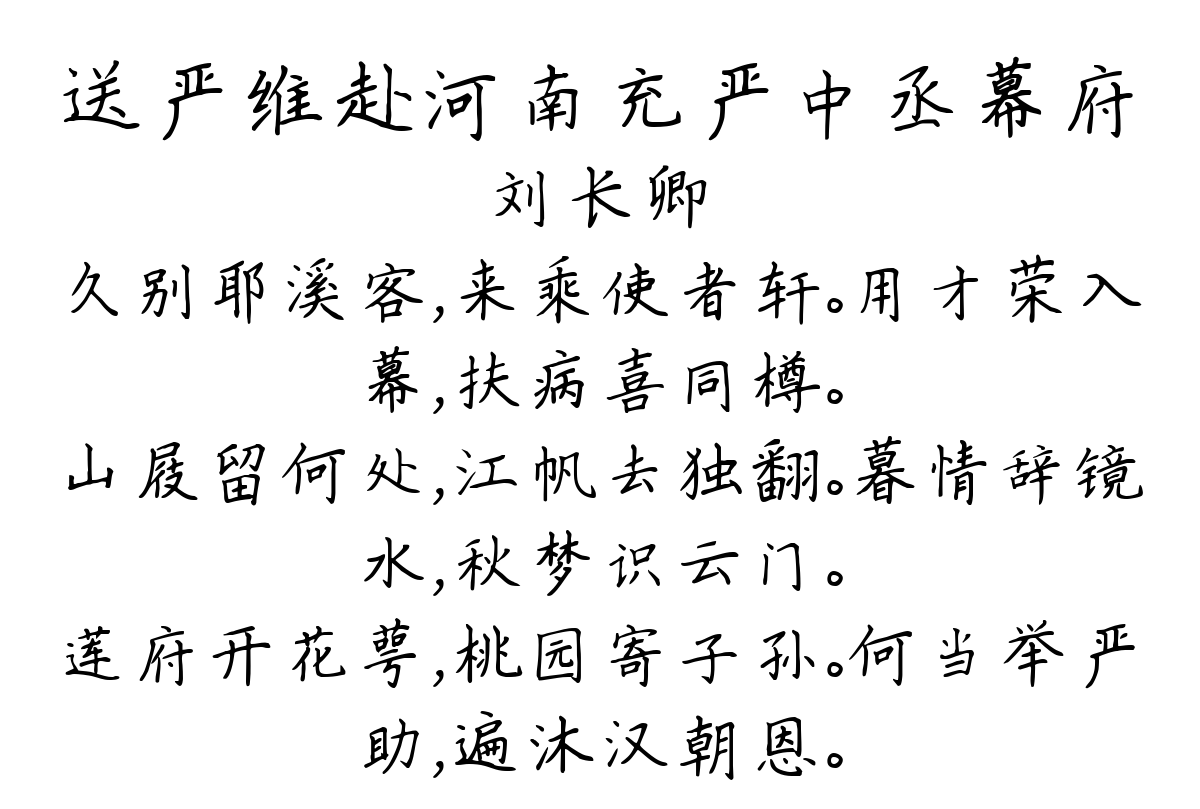 送严维赴河南充严中丞幕府
刘长卿
久别耶溪客,来乘使者轩。用才荣入
幕,扶病喜同樽。
山屐留何处,江帆去独翻。暮情辞镜
水,秋梦识云门。
莲府开花萼,桃园寄子孙。何当举严
助,遍沐汉朝恩。